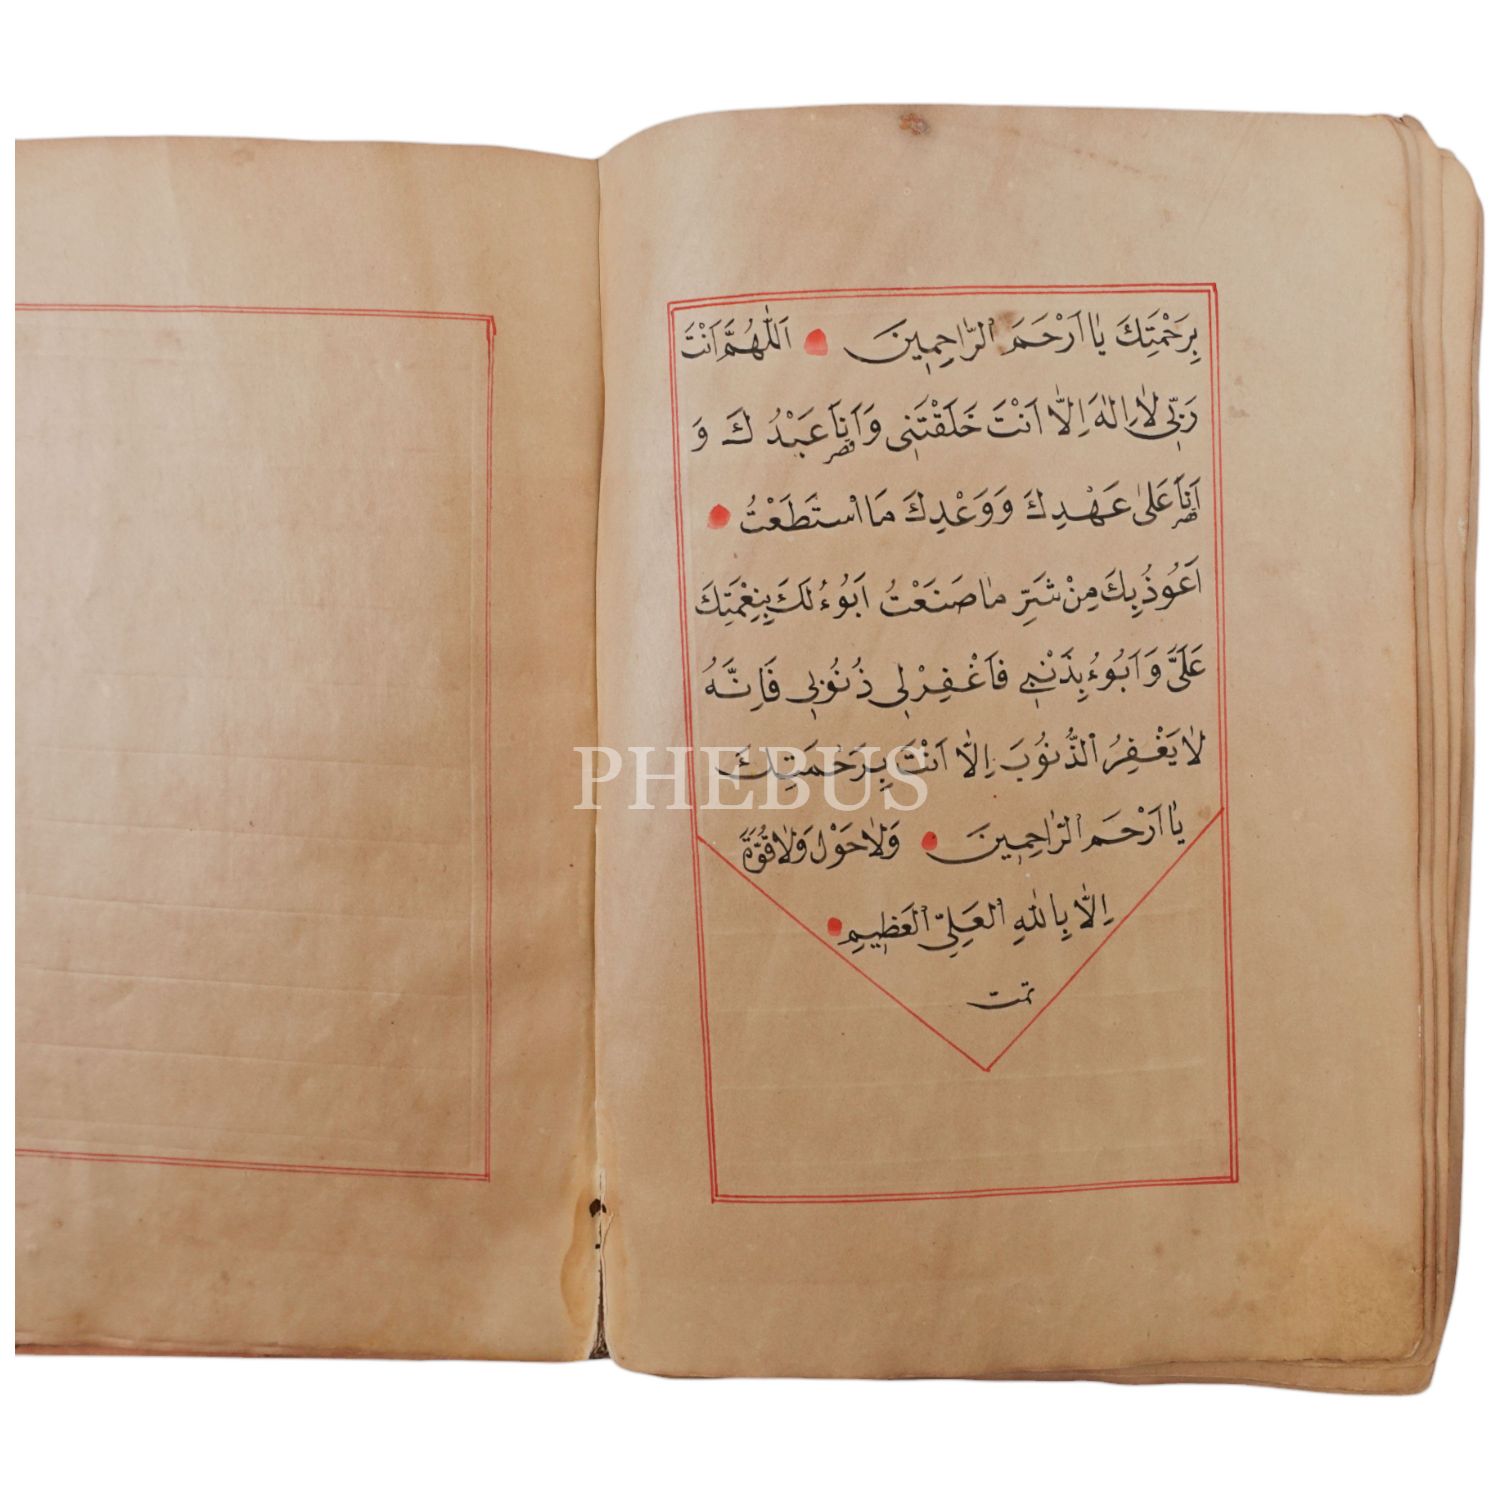 بِرَحْمَتِكَ يَا اَرْحَمَ الرَّاحِمِينَ اَللّٰهُمَّ اَنْتَ
رَبِّي لَا اِلٰهَ اِلَّا اَنْتَ خَلَقْتَنِي وَاَنَا قصر عَبْدُكَ وَ
اَنَا قصر عَلٰى عَهْدِكَ وَوَعْدِكَ مَا اسْتَطَعْتُ
اَعُوذُ بِكَ مِنْ شَرِّ مَا صَنَعْتُ اَبُوءُ لَكَ بِنِعْمَتِكَ
عَلَيَّ وَاَبُوءُ بِذَنْبِي فَاغْفِرْ لِي ذُنُوبِي فَاِنَّهُ
لَا يَغْفِرُ الذُّنُوبَ اِلَّا اَنْتَ بِرَحْمَتِكَ
PHEBUS
يَا اَرْحَمَ الرَّاحِمِينَ وَلَا حَوْلَ وَلَا قُوَّةَ
اِلَّا بِاللّٰهِ الْعَلِيِّ الْعَظِيمِ
تمت